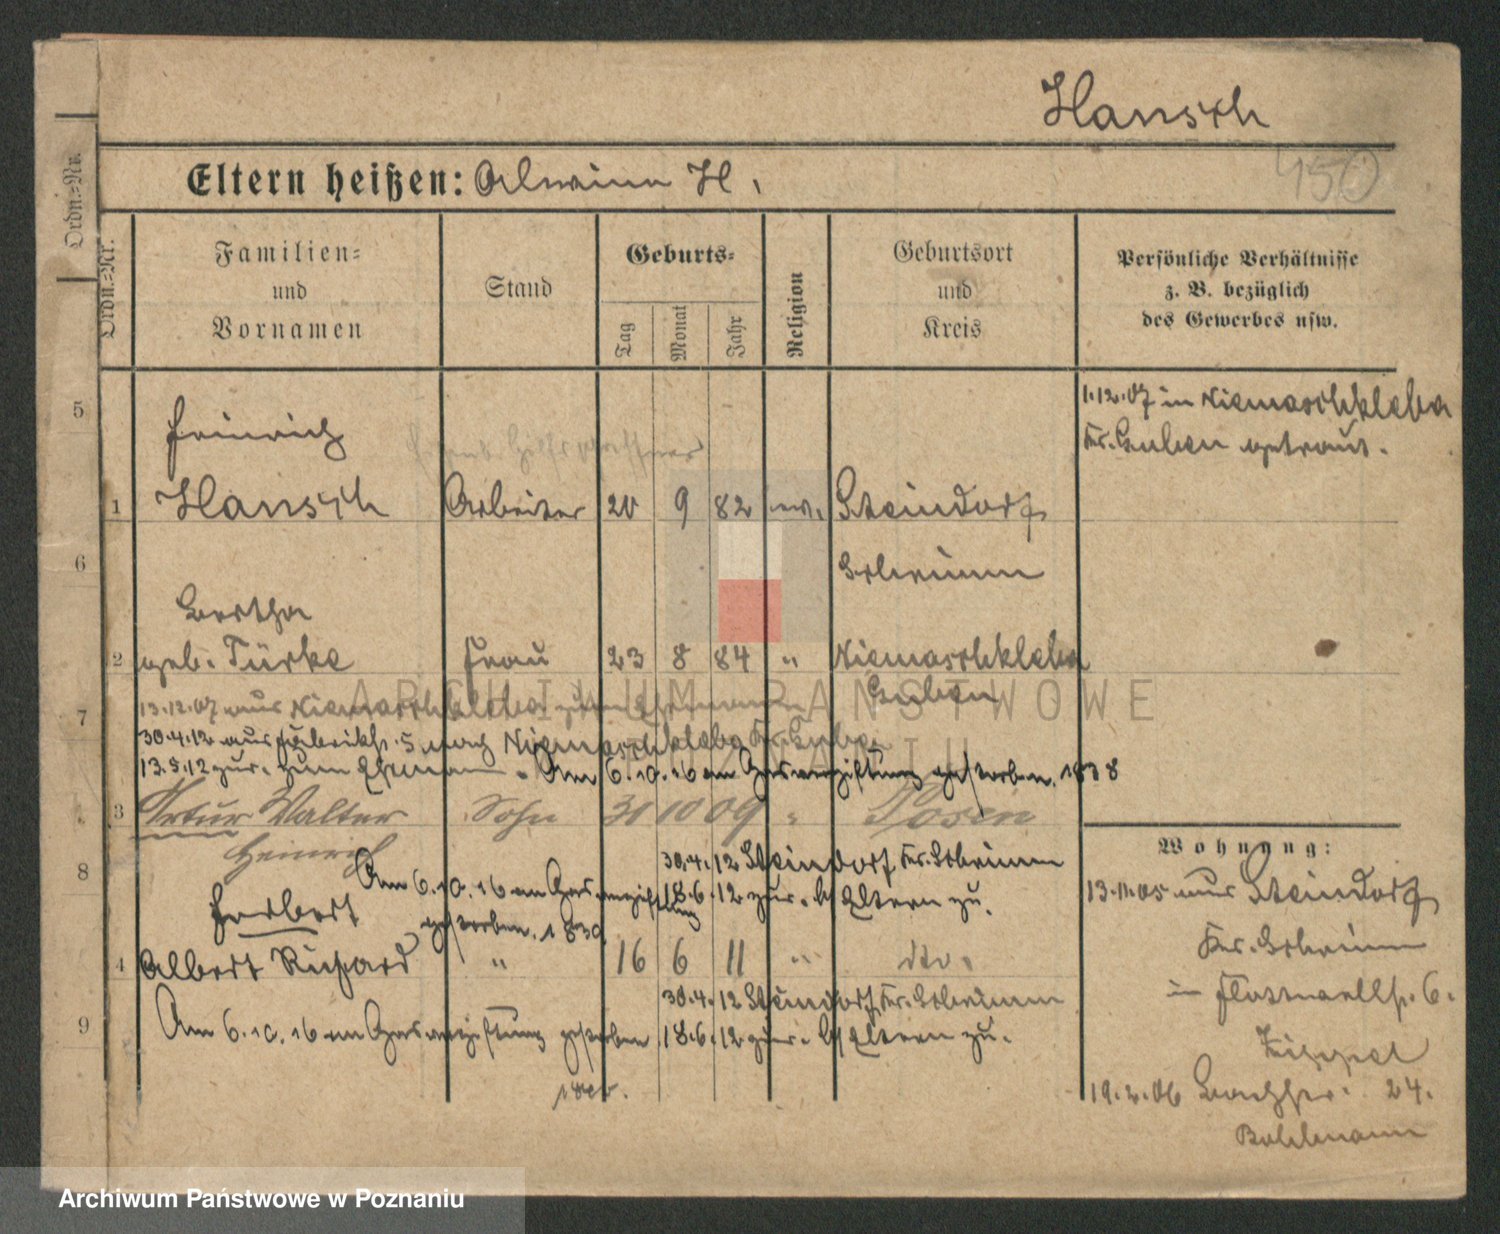 Hansch
450
Eltern heißen: Alwine H.
Ordn.=Nr.
Ordn.=Nr.
Familien=
und
Vornamen
Stand
Geburts=
Tag
Monat
Jahr
Religion
Geburtsort
und
Kreis
Persönliche Verhältnisse
z. B. bezüglich
des Gewerbes usw.
5
1.12.07 in Niemaschkleba
Kr. Guben getraut.
Heinrich
1 Hansch Arbeiter 20 9 82 ev. Steindorf
6
Bertha
2 geb. Türke Frau 23 8 84 " Niemaschkleba
Guben
7
13.12.07 aus Niemaschkleba zum Ehemann
30.4.12 aus nach Niemaschkleba Kr. Guben
13.5.12 zur. zum Ehemann. Am 6.10.16 an Gasvergiftung gestorben. 1838
3 Artur Walter Sohn 31 10 09 " Posen
Heinrich
8
30.4.12 Steindorf Kr.
Am 6.10.16 an Gasvergiftung
gestorben. 1839
18.6.12 zur. b/ Eltern zu.
Herbert
4 Albert Richard " 16 6 11 " dto.
9
30.4.12 Steindorf, Kr.
Am 6.10.16 an Gasvergiftung gestorben 18.6.12 zur. b/ Eltern zu.
Wohnung:
13.11.05 aus Steindorf
Kr.
in 6.
Zippel
19.2.06 24.
ARCHIWUM PAŃSTWOWE
W POZNANIU
Archiwum Państwowe w Poznaniu